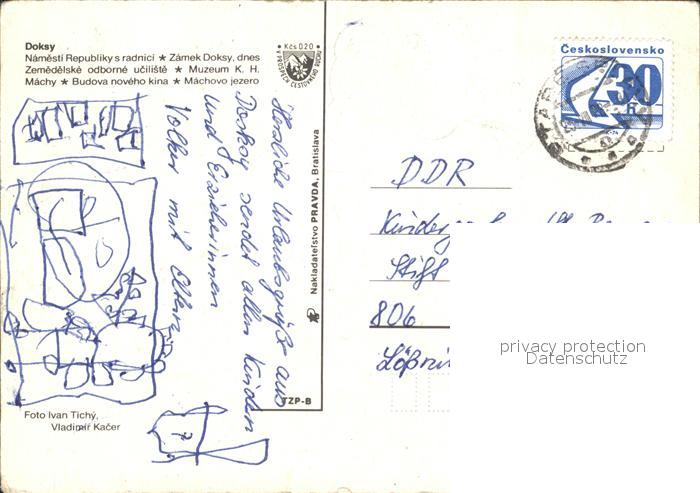 Doksy
Náměstí Republiky s radnicí ★ Zámek Doksy, dnes
Zemědělské odborné učiliště ★ Muzeum K. H.
Máchy ★ Budova nového kina ★ Máchovo jezero
Kčs 0,20
Nakladatelství PRAVDA, Bratislava
TZP-B
Herzliche Urlaubsgrüße aus
Doksy sendet allen Kindern
und Erzieherinnen
Volker mit Eltern
Foto Ivan Tichý,
Vladimír Kačer
Československo
30
h
DDR
Stift
806
privacy protection
Datenschutz